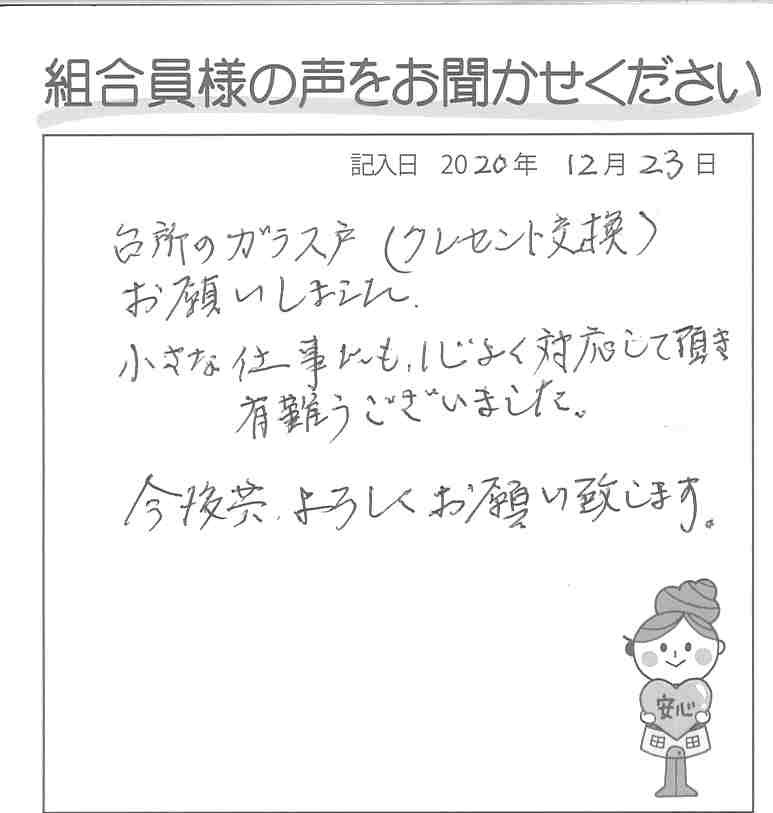 組合員様の声をお聞かせください
記入日 2020年 12月23日
台所のガラス戸(クレセント交換)
お願いしました.
小さな仕事でも、心よく対応して頂き
有難うございました。
今後共、よろしくお願い致します。
安心